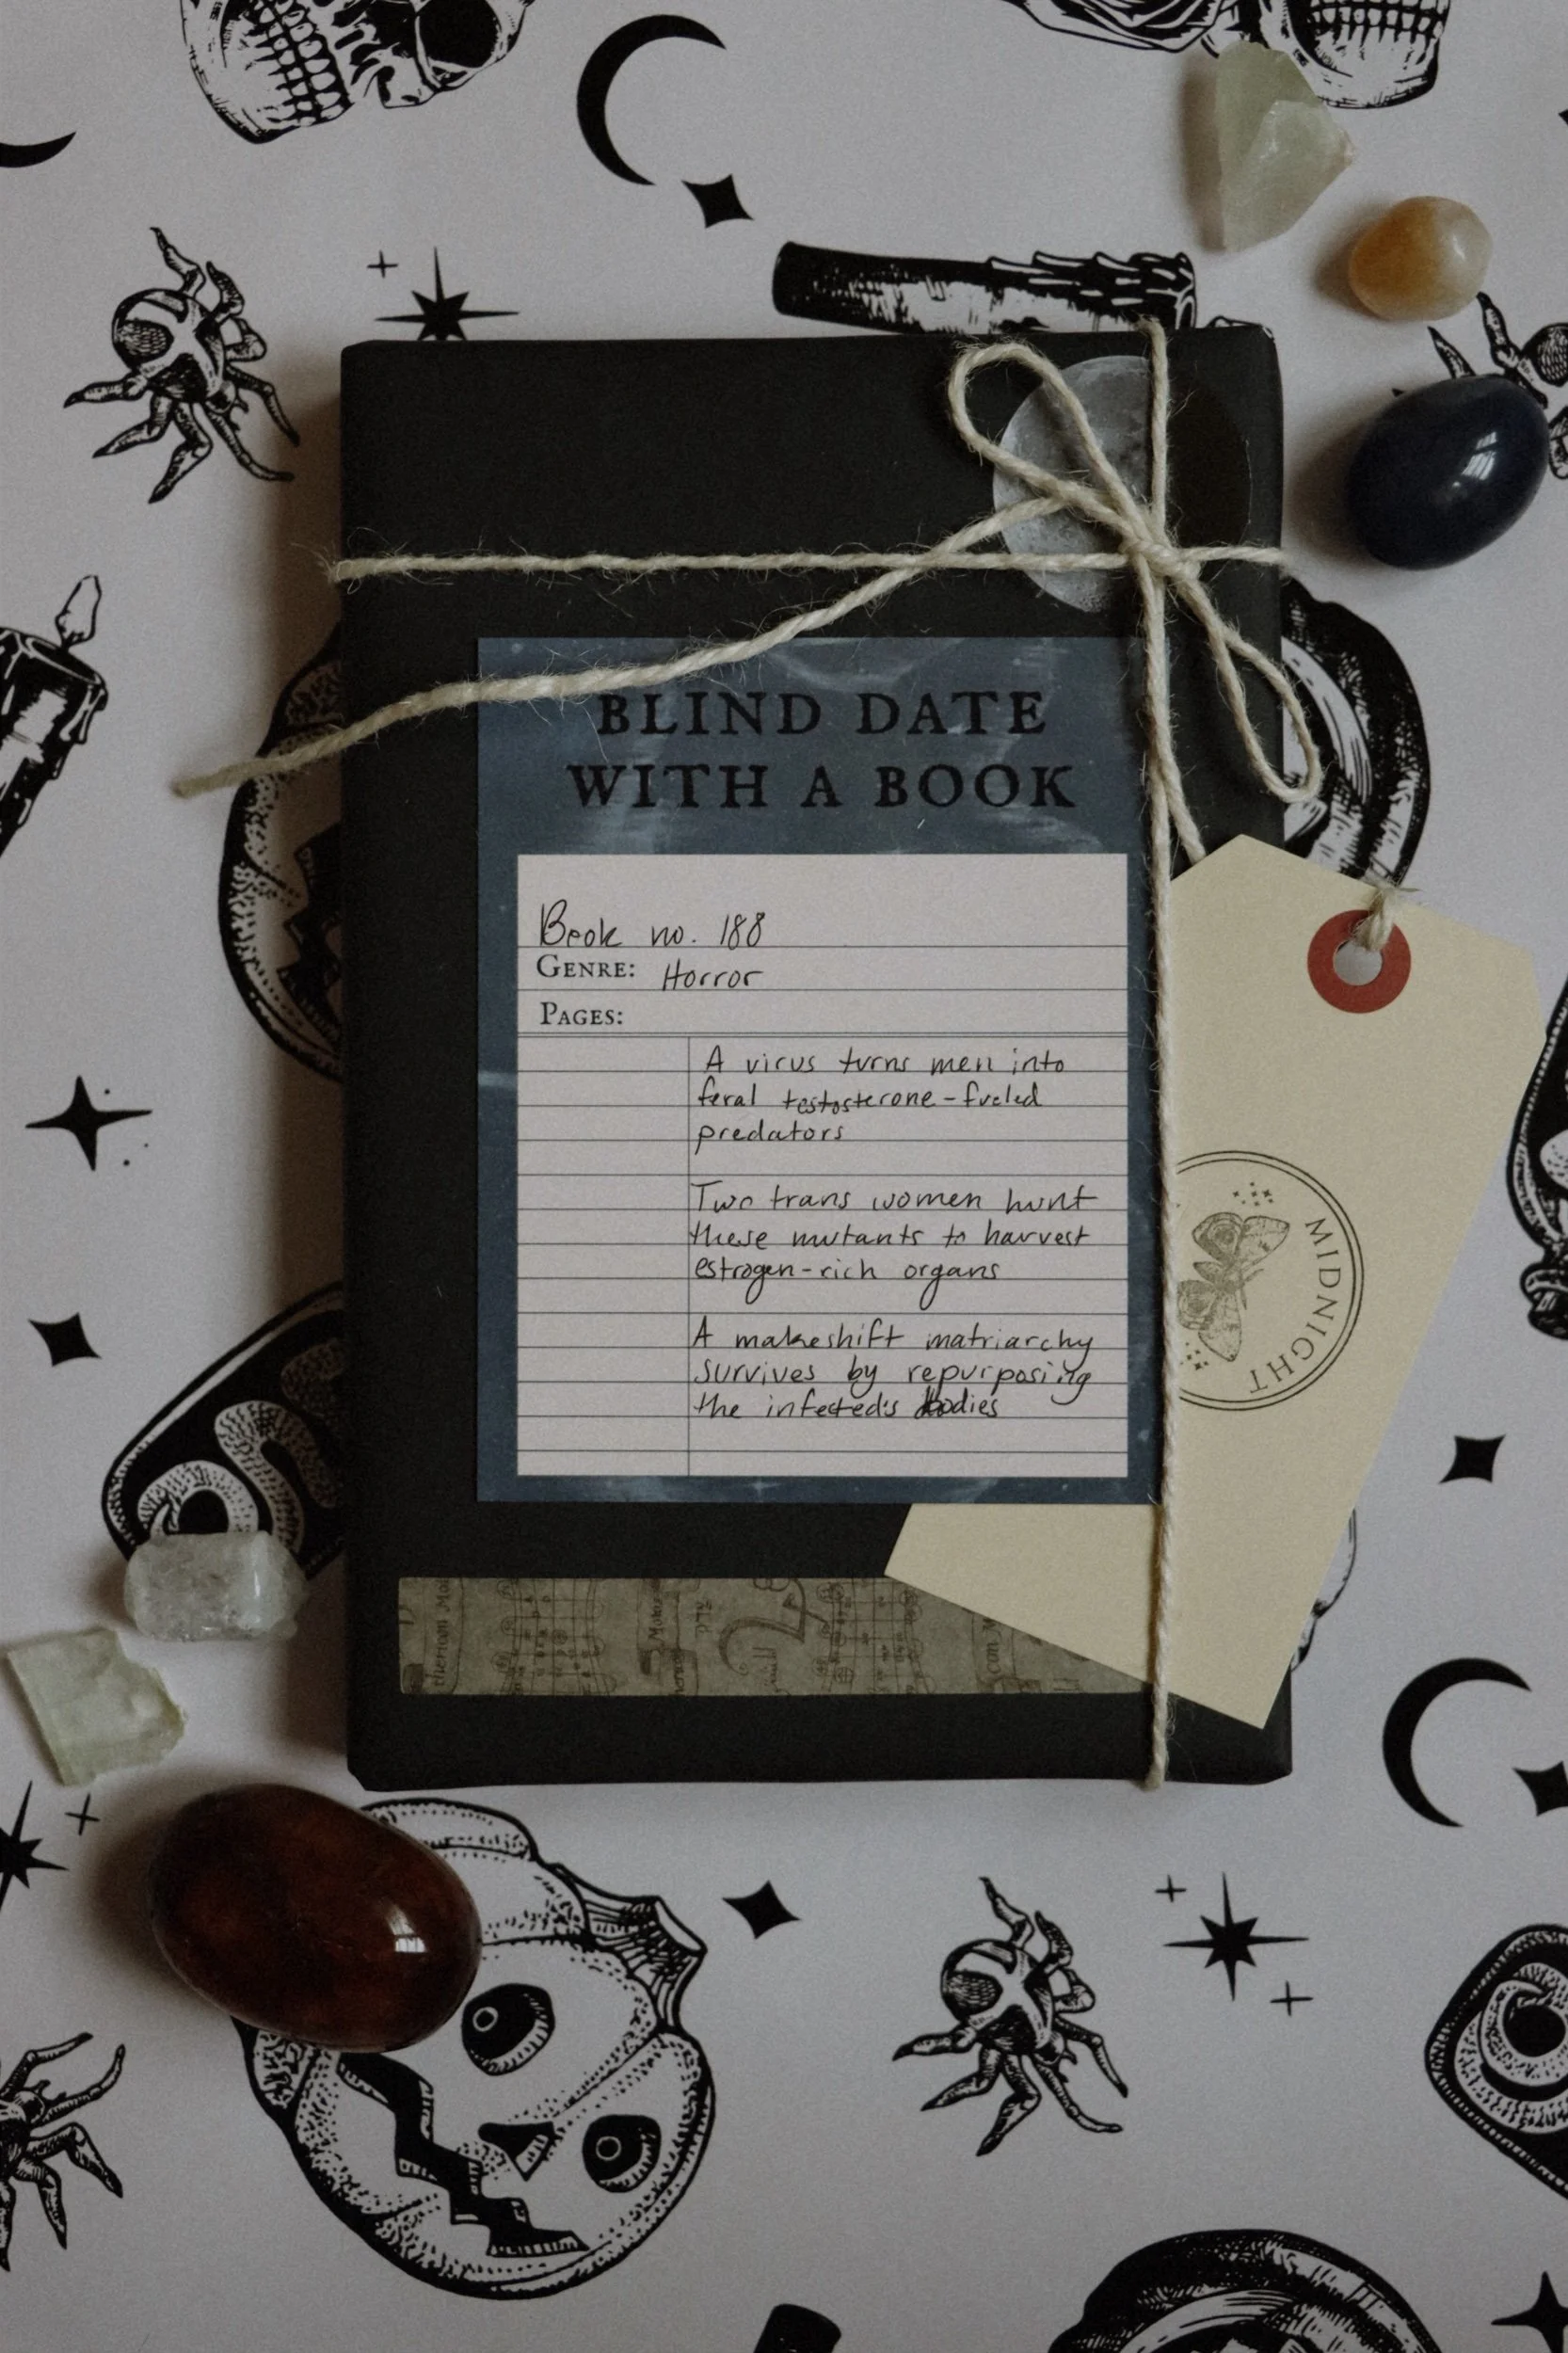 BLIND DATE
WITH A BOOK
Book no. 188
GENRE: Horror
PAGES:
A virus turns men into
feral testosterone-fueled
predators
Two trans women hunt
these mutants to harvest
estrogen-rich organs
A makeshift matriarchy
survives by repurposing
the infected's bodies
MIDNIGHT